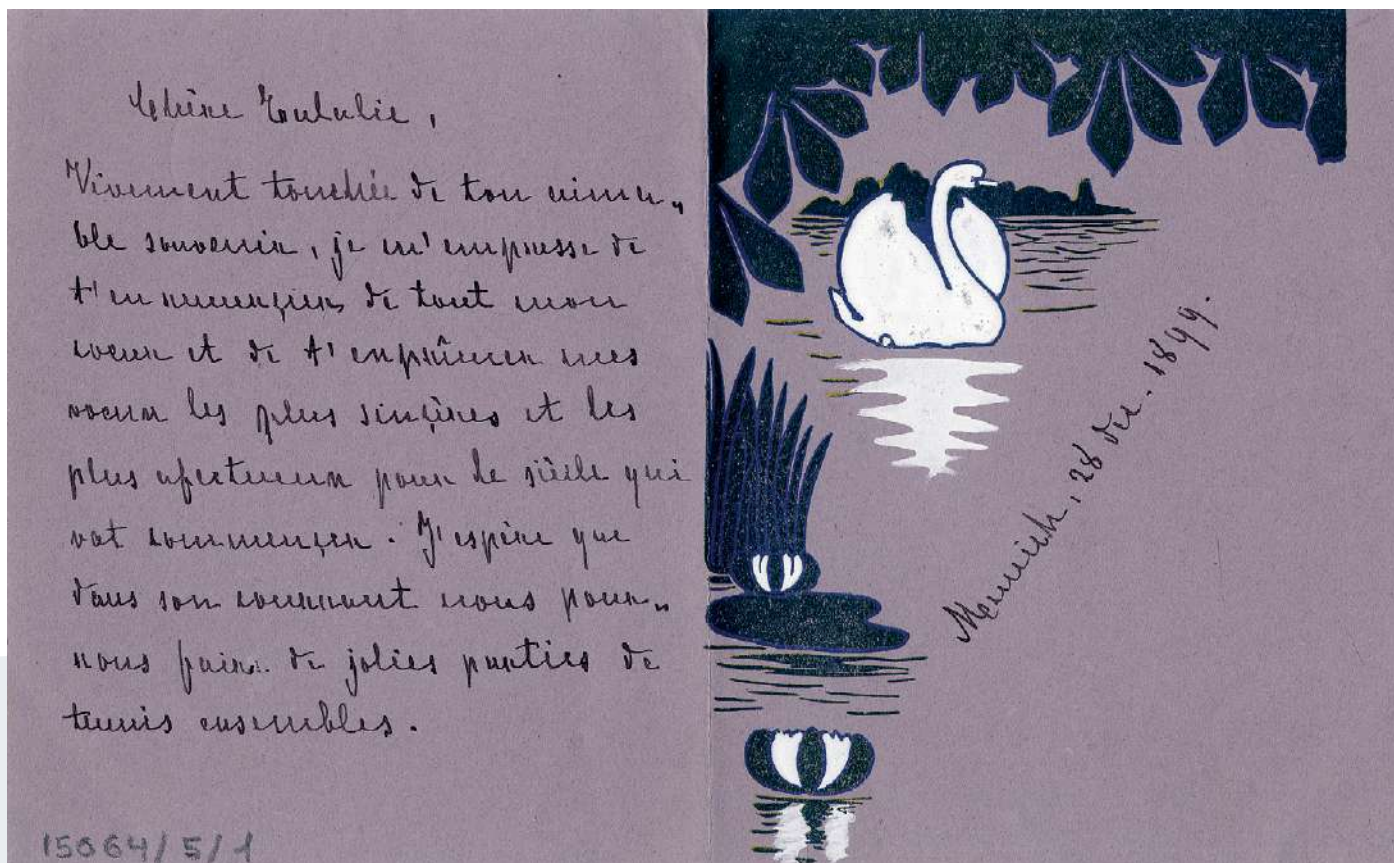 Chère Eulalie,
Vivement touchée de ton aima„
ble souvenir, je m'empresse de
t'en remerçier de tout mon
coeur et de t'exprîmer mes
voeux les plus sinçères et les
plus afectueux pour le siècle qui
vat commençer. J'espère que
dans son courrant nous pour„
nous faire de jolies parties de
tennis ensembles.
Munich, 28 Dec. 1899.
15064/5/1